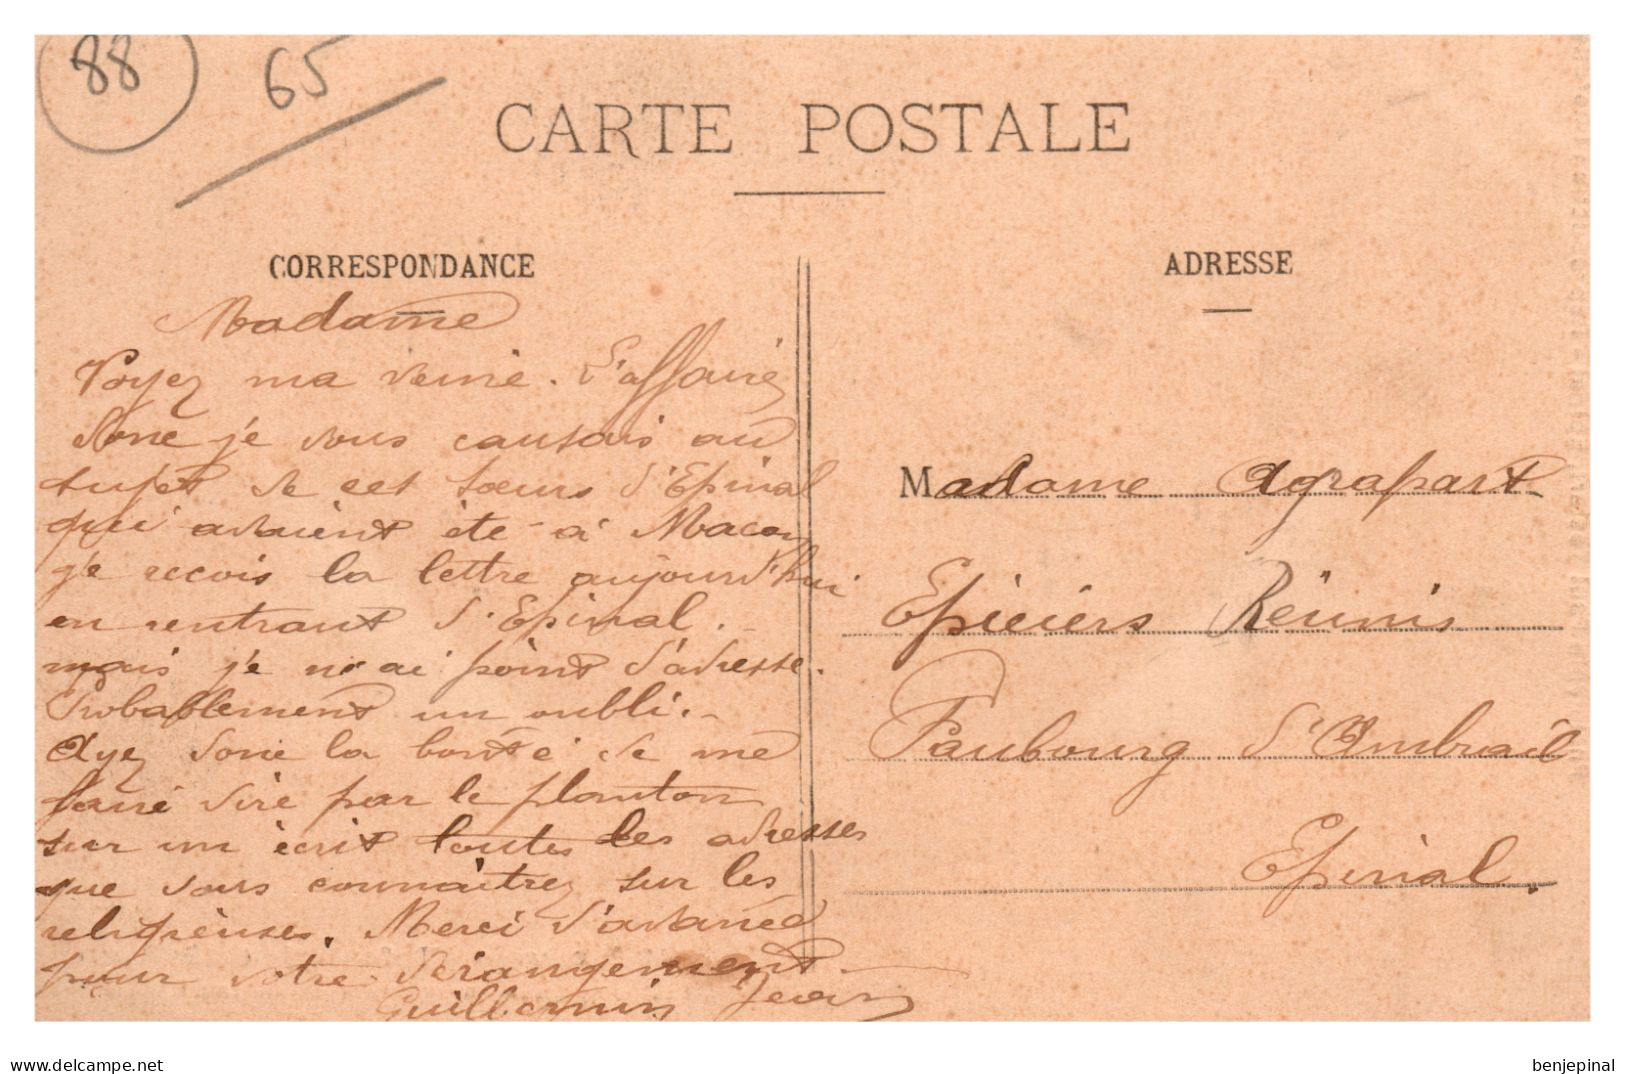 88
65
CARTE POSTALE
CORRESPONDANCE
Madame
Voyez ma veine. L'affaire
donc je vous causais au
sujet de cet soeurs d'Epinal
qui avaient été à Macon
je recois la lettre aujourd'hui
en rentrant d'Epinal.
mais je n'ai point d'adresse.
Probablement un oubli.
Ayez donc la bonté de me
faire dire par le planton
sur un écrit toutes les adresses
que vous connaitrez sur les
religieuses. Merci d'avance
pour votre dérangement.
Guillemin Jean
ADRESSE
Madame Agrapart
Epiciers Réunis
Faubourg d'Ambrail
Epinal.
www.delcampe.net
benjepinal